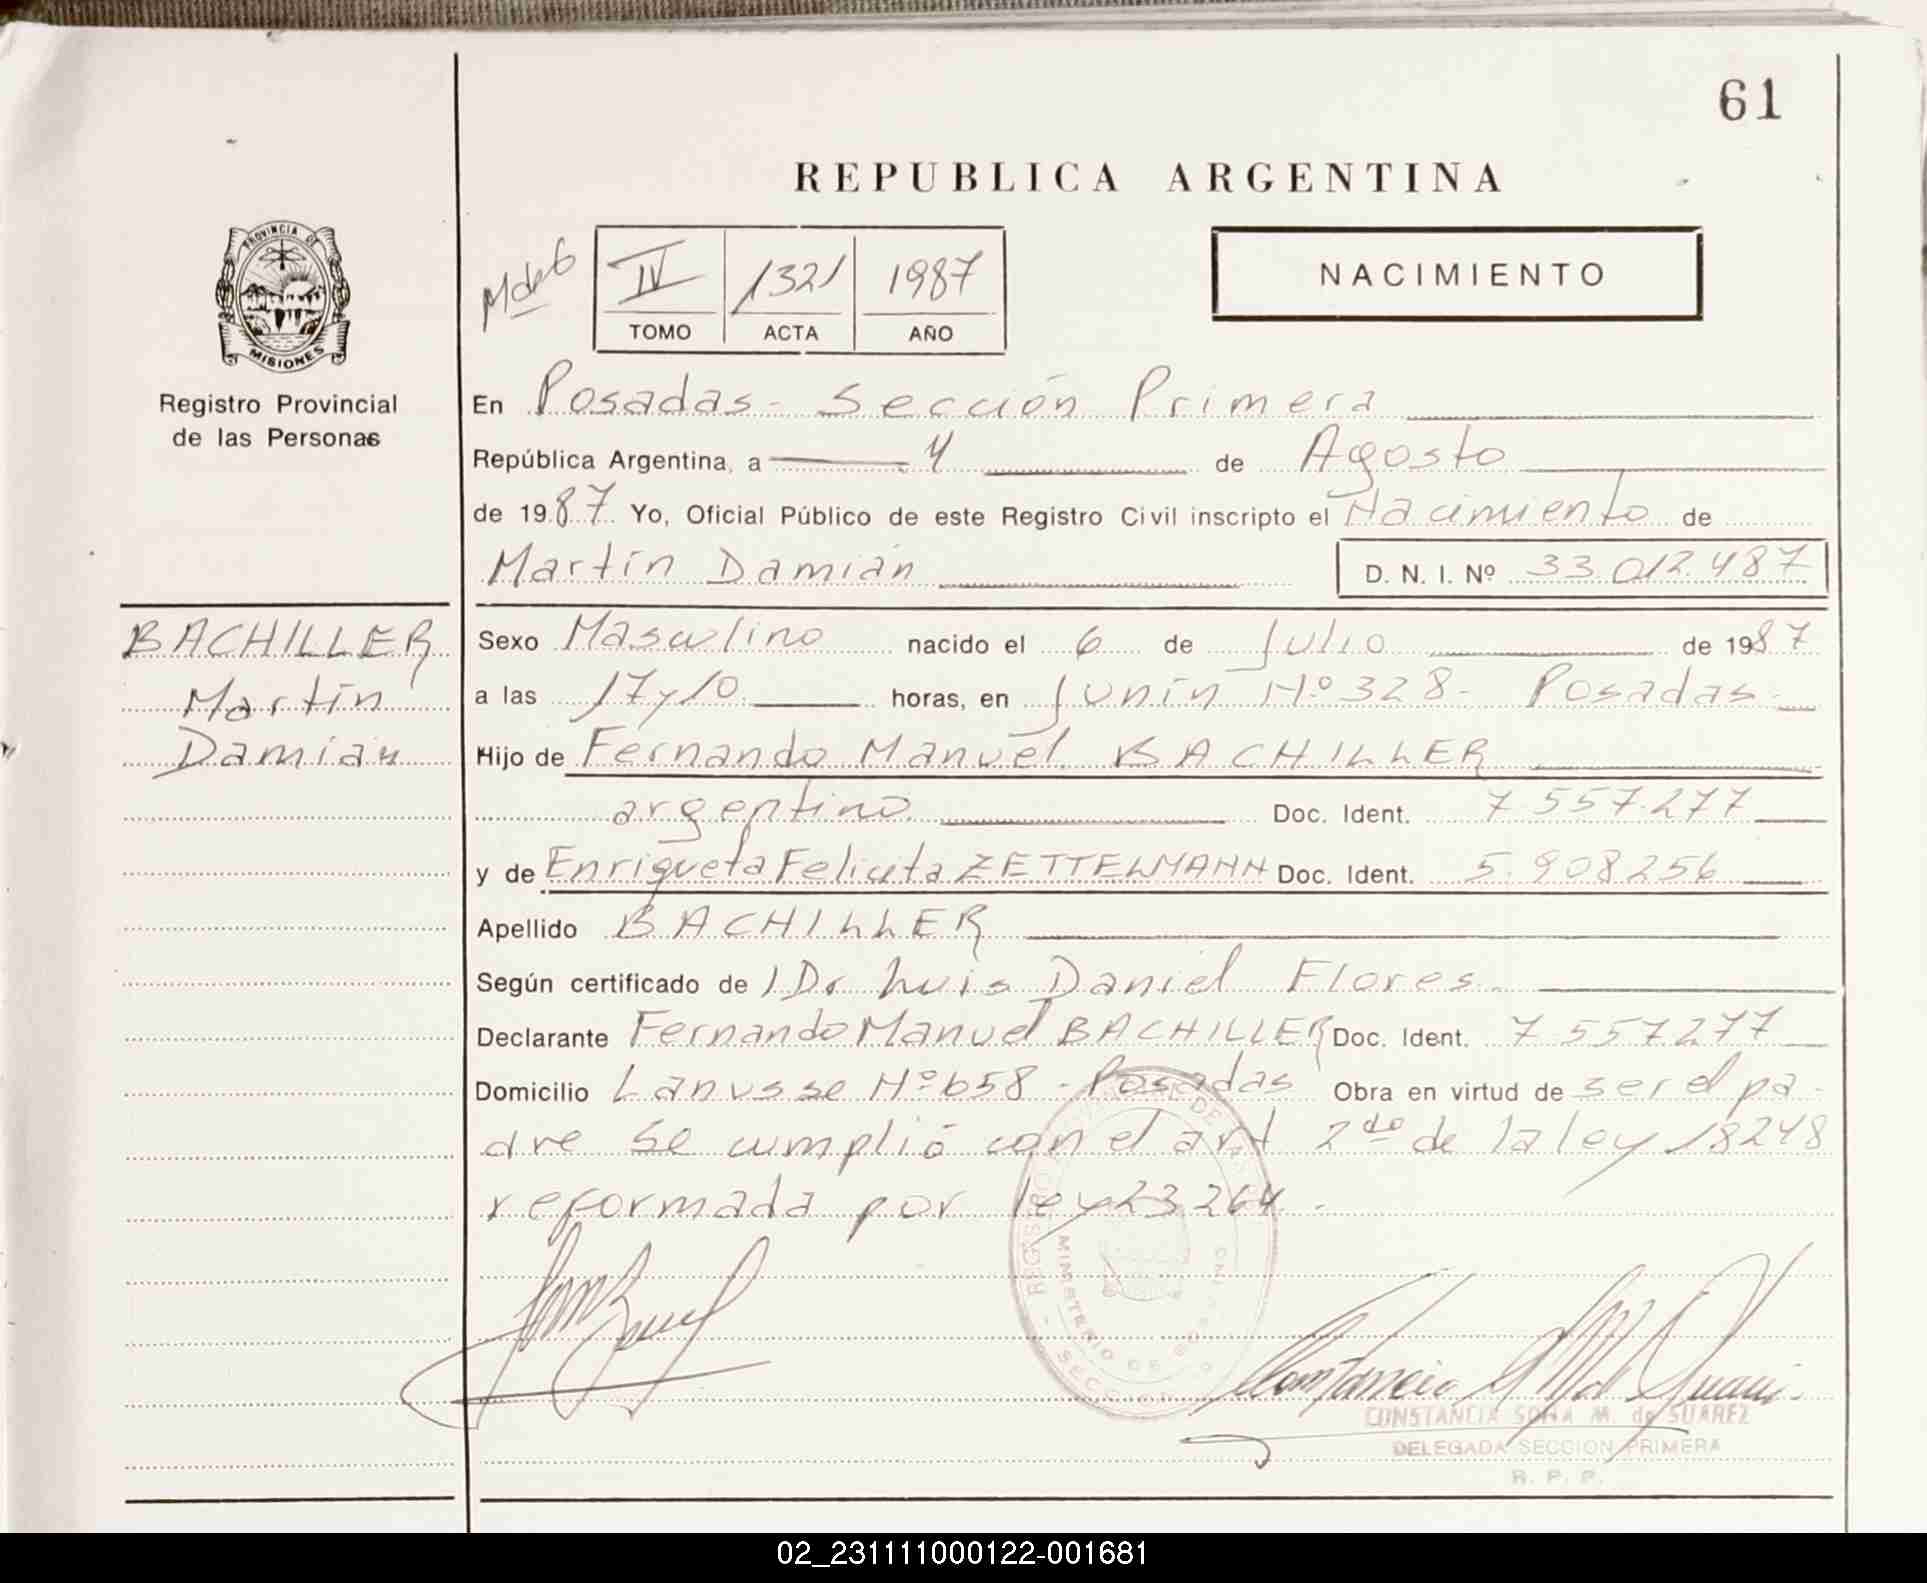 61
REPUBLICA ARGENTINA
PROVINCIA DE
MISIONES
Registro Provincial
de las Personas
IV 1321 1987
TOMO ACTA AÑO
NACIMIENTO
En Posadas - Sección Primera
República Argentina, a 4 de Agosto
de 1987 Yo, Oficial Público de este Registro Civil inscripto el Nacimiento de
Martín Damián D. N. I. Nº 33.012.487
BACHILLER
Martín
Damián
Sexo Masculino nacido el 6 de Julio de 1987
a las 17 y 10 horas, en Junín Nº 328 - Posadas
Hijo de Fernando Manuel BACHILLER
argentino Doc. Ident. 7.557.277
y de Enriqueta Felicita ZETTELMANN Doc. Ident. 5.908256
Apellido BACHILLER
Según certificado de l Dr Luis Daniel Flores
Declarante Fernando Manuel BACHILLER Doc. Ident. 7.557.277
Domicilio Lanusse Nº 658 - Posadas Obra en virtud de ser el pa-
dre Se cumplió con el art 2do de la ley 18248
reformada por ley 23264.
MINISTERIO DE GOBIERNO
CONSTANCIA SOFIA M. de SUAREZ
DELEGADA SECCION PRIMERA
R. P. P.
02_231111000122-001681